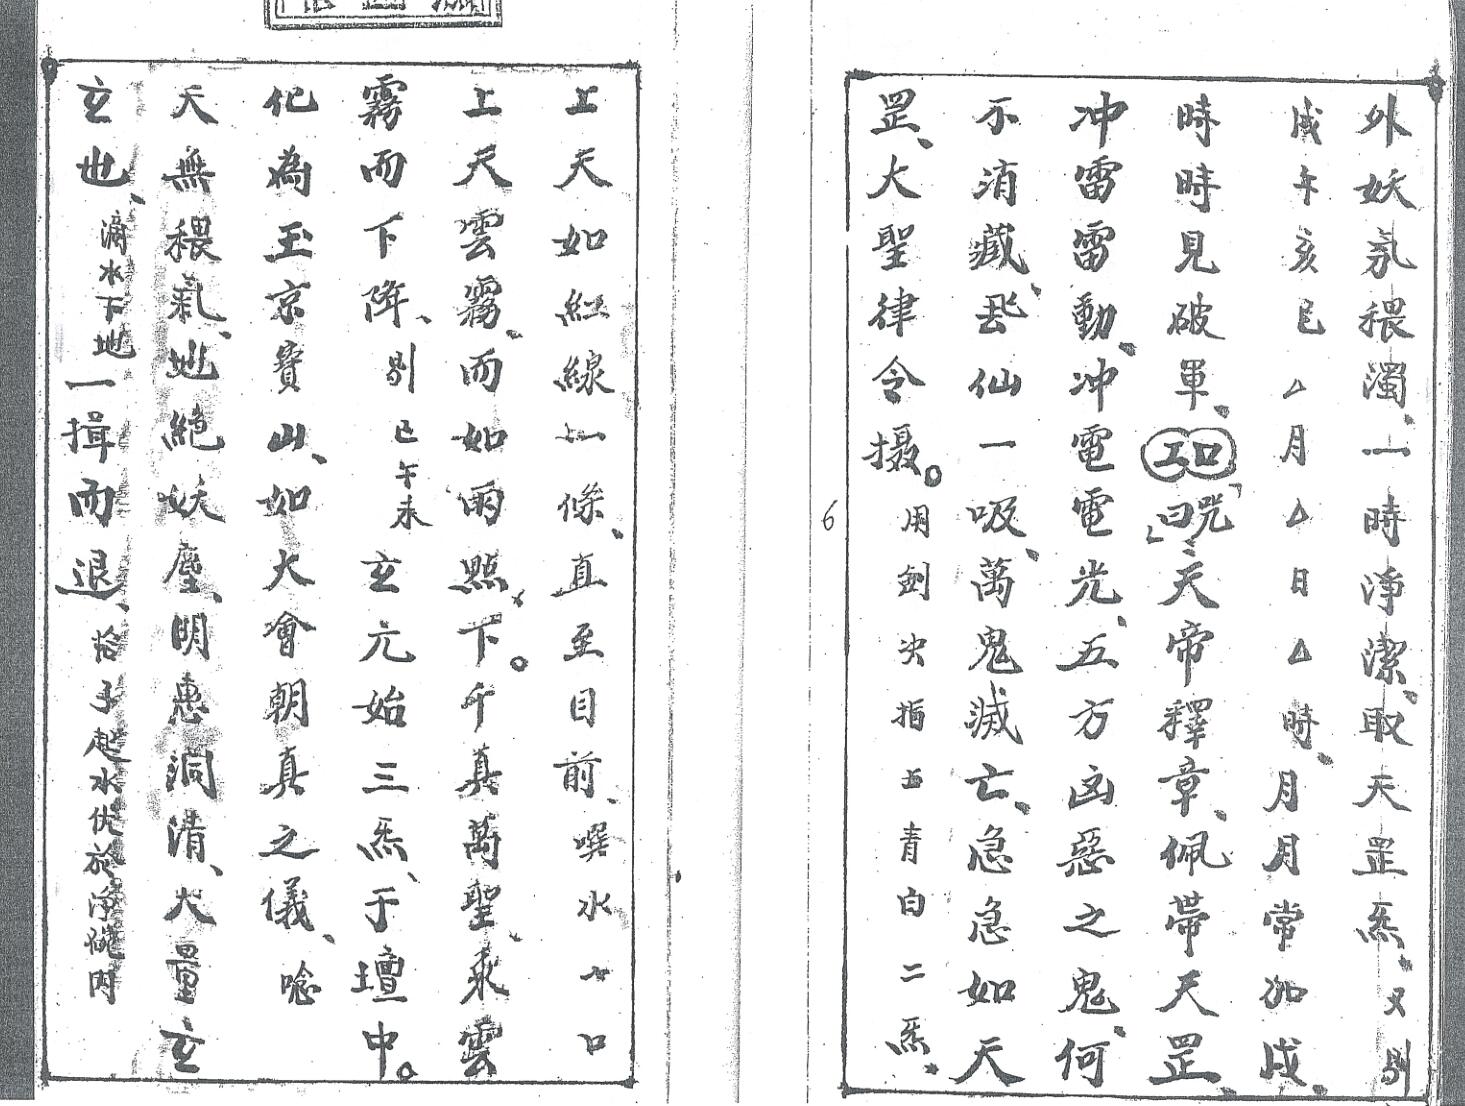 外妖氛穢濁、一時淨潔、取天罡炁、又剔
戌午亥巳△月△日△時、月月常加戌、
時時見破軍、咒曰、天帝釋章、佩帶天罡、
冲雷雷動、冲電電光、五方凶惡之鬼、何
不消藏、飛仙一吸、萬鬼滅亡、急急如天
罡、大聖律令摄。用劍決指 青白二炁、
6
上天如紅線一條、直至目前、噀水一口
上天雲霧、而如雨點下。千真萬聖、乘雲
霧而下降、剔巳午未玄元始三炁、于壇中。
化為玉京寶山、如大會朝真之儀、唸
天無穢氣、地絕妖塵、明惠洞清、大量玄
玄也、滴水下地一揖而退、
起水伏於淨碗內